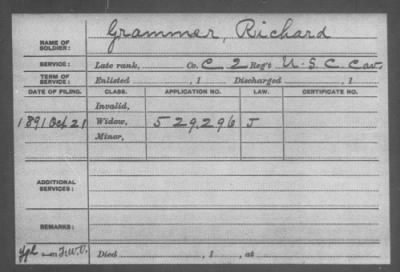 NAME OF SOLDIER: Grammer, Richard
SERVICE: Late rank, Co. C 2 Reg't U.S.C. Cav.
TERM OF SERVICE: Enlisted , 1 Discharged , 1
DATE OF FILING. CLASS. APPLICATION NO. LAW. CERTIFICATE NO.
Invalid,
1891 Oct 21 Widow, 529,296 J
Minor,
ADDITIONAL SERVICES:
REMARKS:
Died , 1 , at